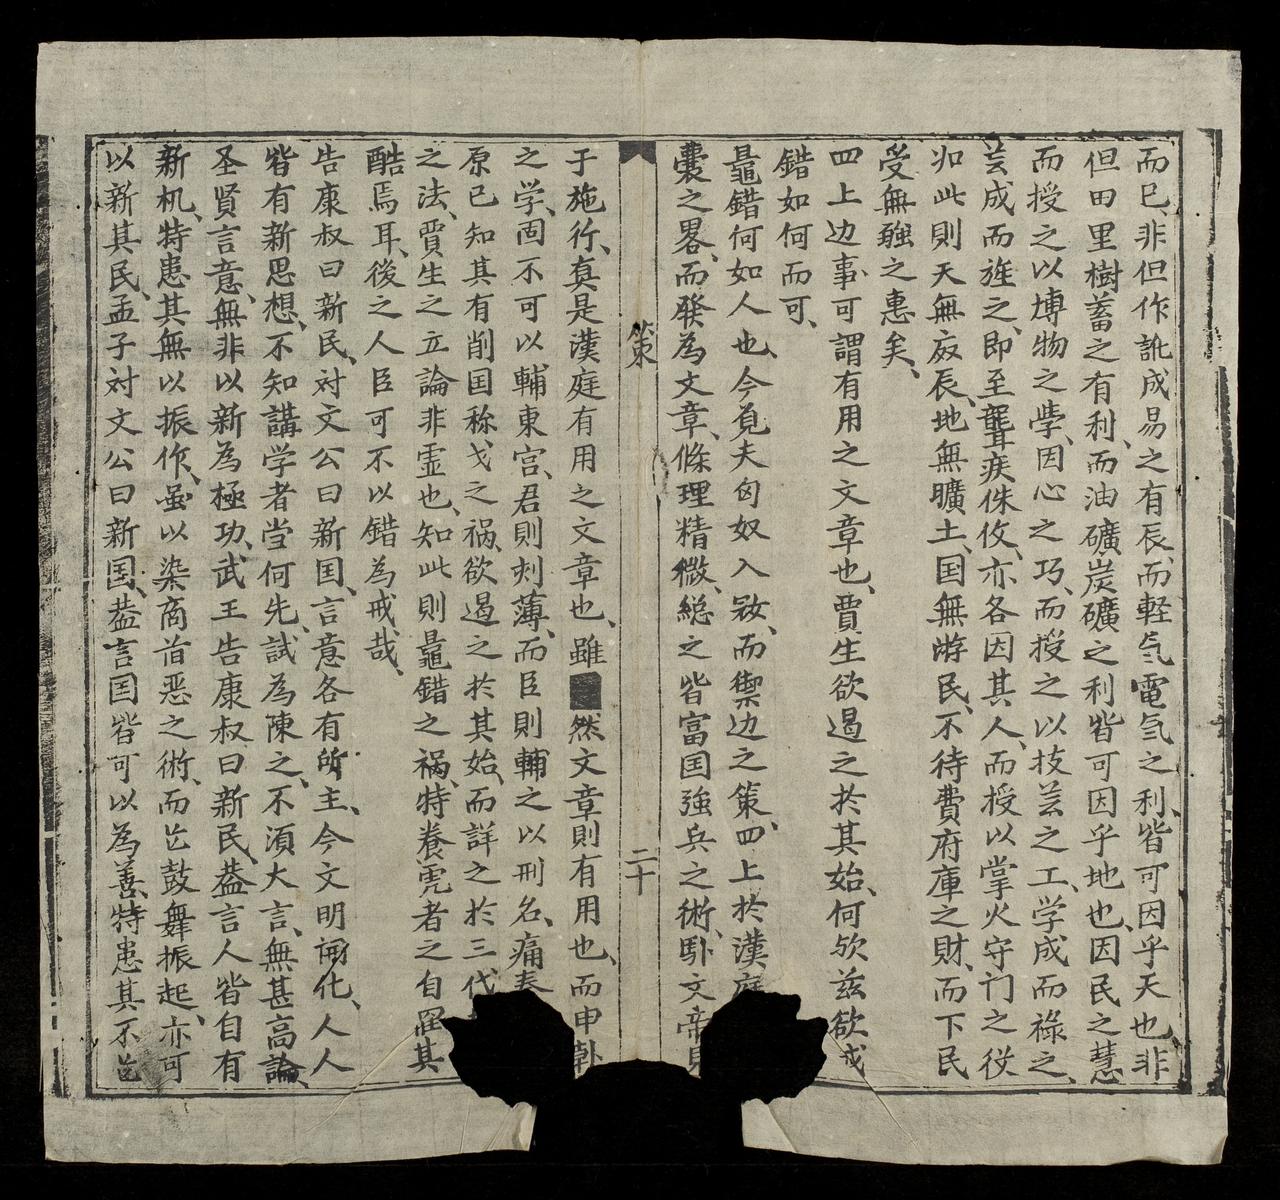 而已、非但作訛成易之有辰、而軽气電气之利、皆可因乎天也、非
但田里樹蓄之有利、而油礦炭礦之利皆可因乎地也、因民之慧
而授之以博物之學、因心之巧、而授之以技芸之工、学成而祿之、
芸成而旌之、即至聾疾侏、亦各因其人、而授以掌火守门之役
如此則天無辰、地無曠土、国無游民、不待費府庫之財、而下民
受無強之惠矣、
四上边事可謂有用之文章也、賈生欲遏之於其始、何欤兹欲戒
錯如何而可、
鼂錯何如人也、今夫匈奴入寇、而禦边之策、四上於漢庭
囊之畧、而發為文章、條理精微、総之皆富国強兵之術、卧文帝
策
二十
于施行、真是漢庭有用之文章也、雖然文章則有用也、而申韩
之学、固不可以輔東宫、君則刻薄、而臣則輔之以刑名、痛
原已知其有削国称戈之祸、欲遏之於其始、而詳之於三代
之法、賈生之立論非虚也、知此則鼂錯之祸、特養虎者之自罹其
酷焉耳、後之人臣可不以錯為戒哉、
告康叔曰新民、対文公曰新国、言意各有所主、今文明開化、人人
皆有新思想、不知講学者当何先、試為陳之、不須大言、無甚高論、
圣贤言意、無非以新為極功、武王告康叔曰新民、盖言人皆自有
新机、特患其無以振作、虽以染商首恶之術、而鼓舞振起、亦可
以新其民、孟子対文公曰新国、盖言国皆可以為善、特患其不